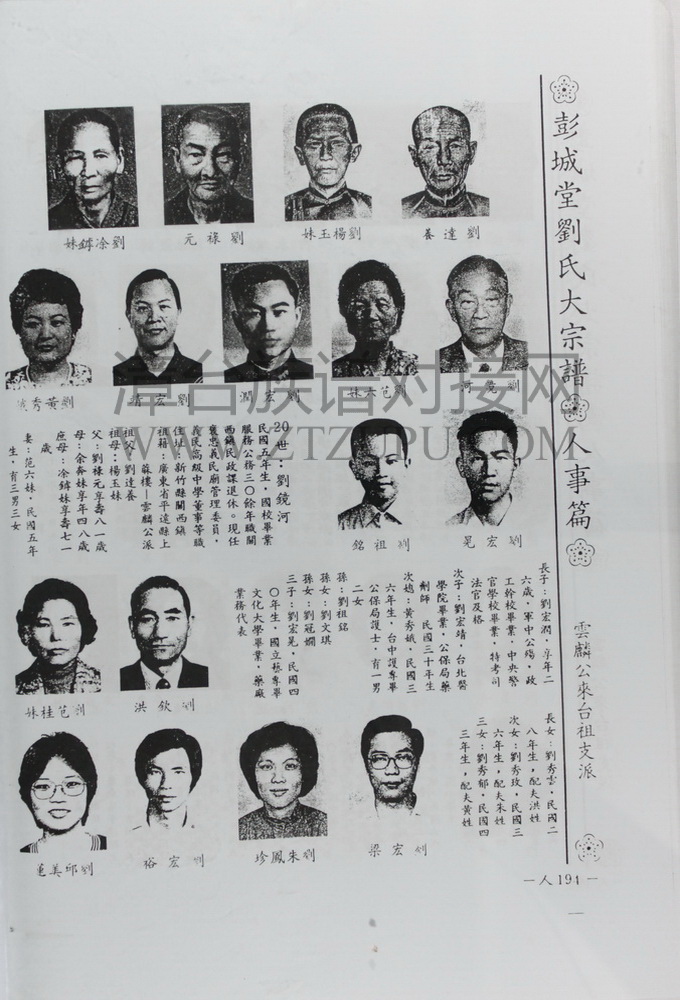 彭城堂劉氏大宗譜
人事篇
雲麟公來台祖支派
劉達養
劉楊玉妹
劉祿元
劉凃鎼妹
劉鏡河
劉范六妹
劉宏潤
劉宏靖
劉黃秀娥
劉宏晃
劉祖銘
20世：劉鏡河
民國五年生，國校畢業
服務公務三〇餘年職關
西鎮民政課退休。現任
褒忠義民廟管理委員，
義民高級中學董事等職
住址：新竹縣關西鎮
祖籍：廣東省平遠縣上
蘇樓—雲麟公派
祖父：劉達養
祖母：楊玉妹
父：劉祿元享壽八一歲
母：余奔妹享年四八歲
庶母：凃鎼妹享壽七一
歲
妻：范六妹，民國五年
生，育三男三女
長子：劉宏潤，享年二
六歲，軍中公殤，政
工幹校畢業，中央警
官學校畢業，特考司
法官及格
次子：劉宏靖，台北醫
學院畢業，公保局藥
劑師 民國三十年生
次媳：黃秀娥，民國三
六年生，台中護專畢
公保局護士，育一男
二女
孫：劉祖銘
孫女：劉文琪
孫女：劉冠嫺
三子：劉宏晃，民國四
〇年生，國立藝專畢
文化大學畢業，藥廠
業務代表
長女：劉秀雲，民國二
八年生，配夫洪姓
次女：劉秀玫，民國三
六年生，配夫朱姓
三女：劉秀郁，民國四
三年生，配夫黃姓
劉欽洪
劉范桂妹
劉宏梁
劉朱鳳珍
劉宏裕
劉邱美蓮
—人194—
漳台族谱对接网
WWW.ZTZUPU.COM